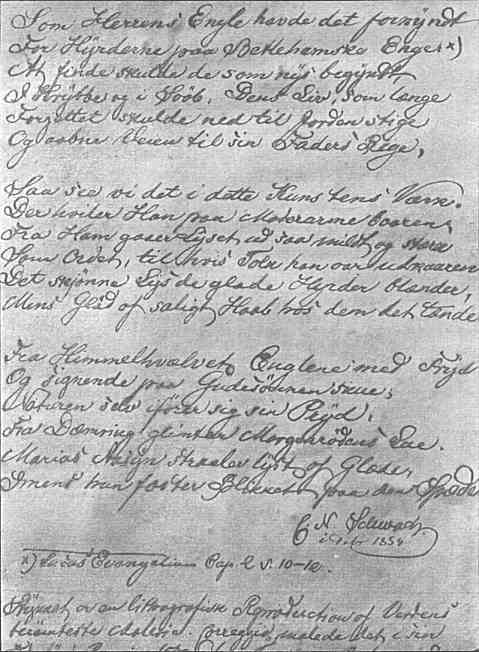 Som Herrens Engle havde det forkyndt
For Hyrderne paa Betlehemske Enge *)
At finde skulde de som nys begyndt,
I Krybbe og i Svøb, Dens Liv, som længe
Forjættet skulde ned til Jorden stige
Og aabne Veien til sin Faders Rige,
Saa see vi det i dette Kunstens Værk.
Der hviler Han paa Moderarme baaren,
Fra Ham gaaer Lyset ud saa mildt og stærk
Som Ordet, til hvis Tolk han var udkaaren
Det skjønne Lys de glade Hyrder blænder,
Mens Glød af saligt Haab hos dem det tænder
Fra Himmelhvælvet Englene med Fryd
Og signende paa Gudesønnen skue;
Naturen selv ifører sig sin Pryd,
Fra Dæmring glimter Morgenrødens Lue.
Marias Aasyn straaler lyst af Glæde,
Imens hun fæster Blikket paa den Spæde
C. N. Schwach
1854
*) Lucas' Evangelium Cap. 2 V. 10-12.
Skrevet en lithografisk Reproduction af Verdens
berømteste Malerie. Correggio malede det i sin